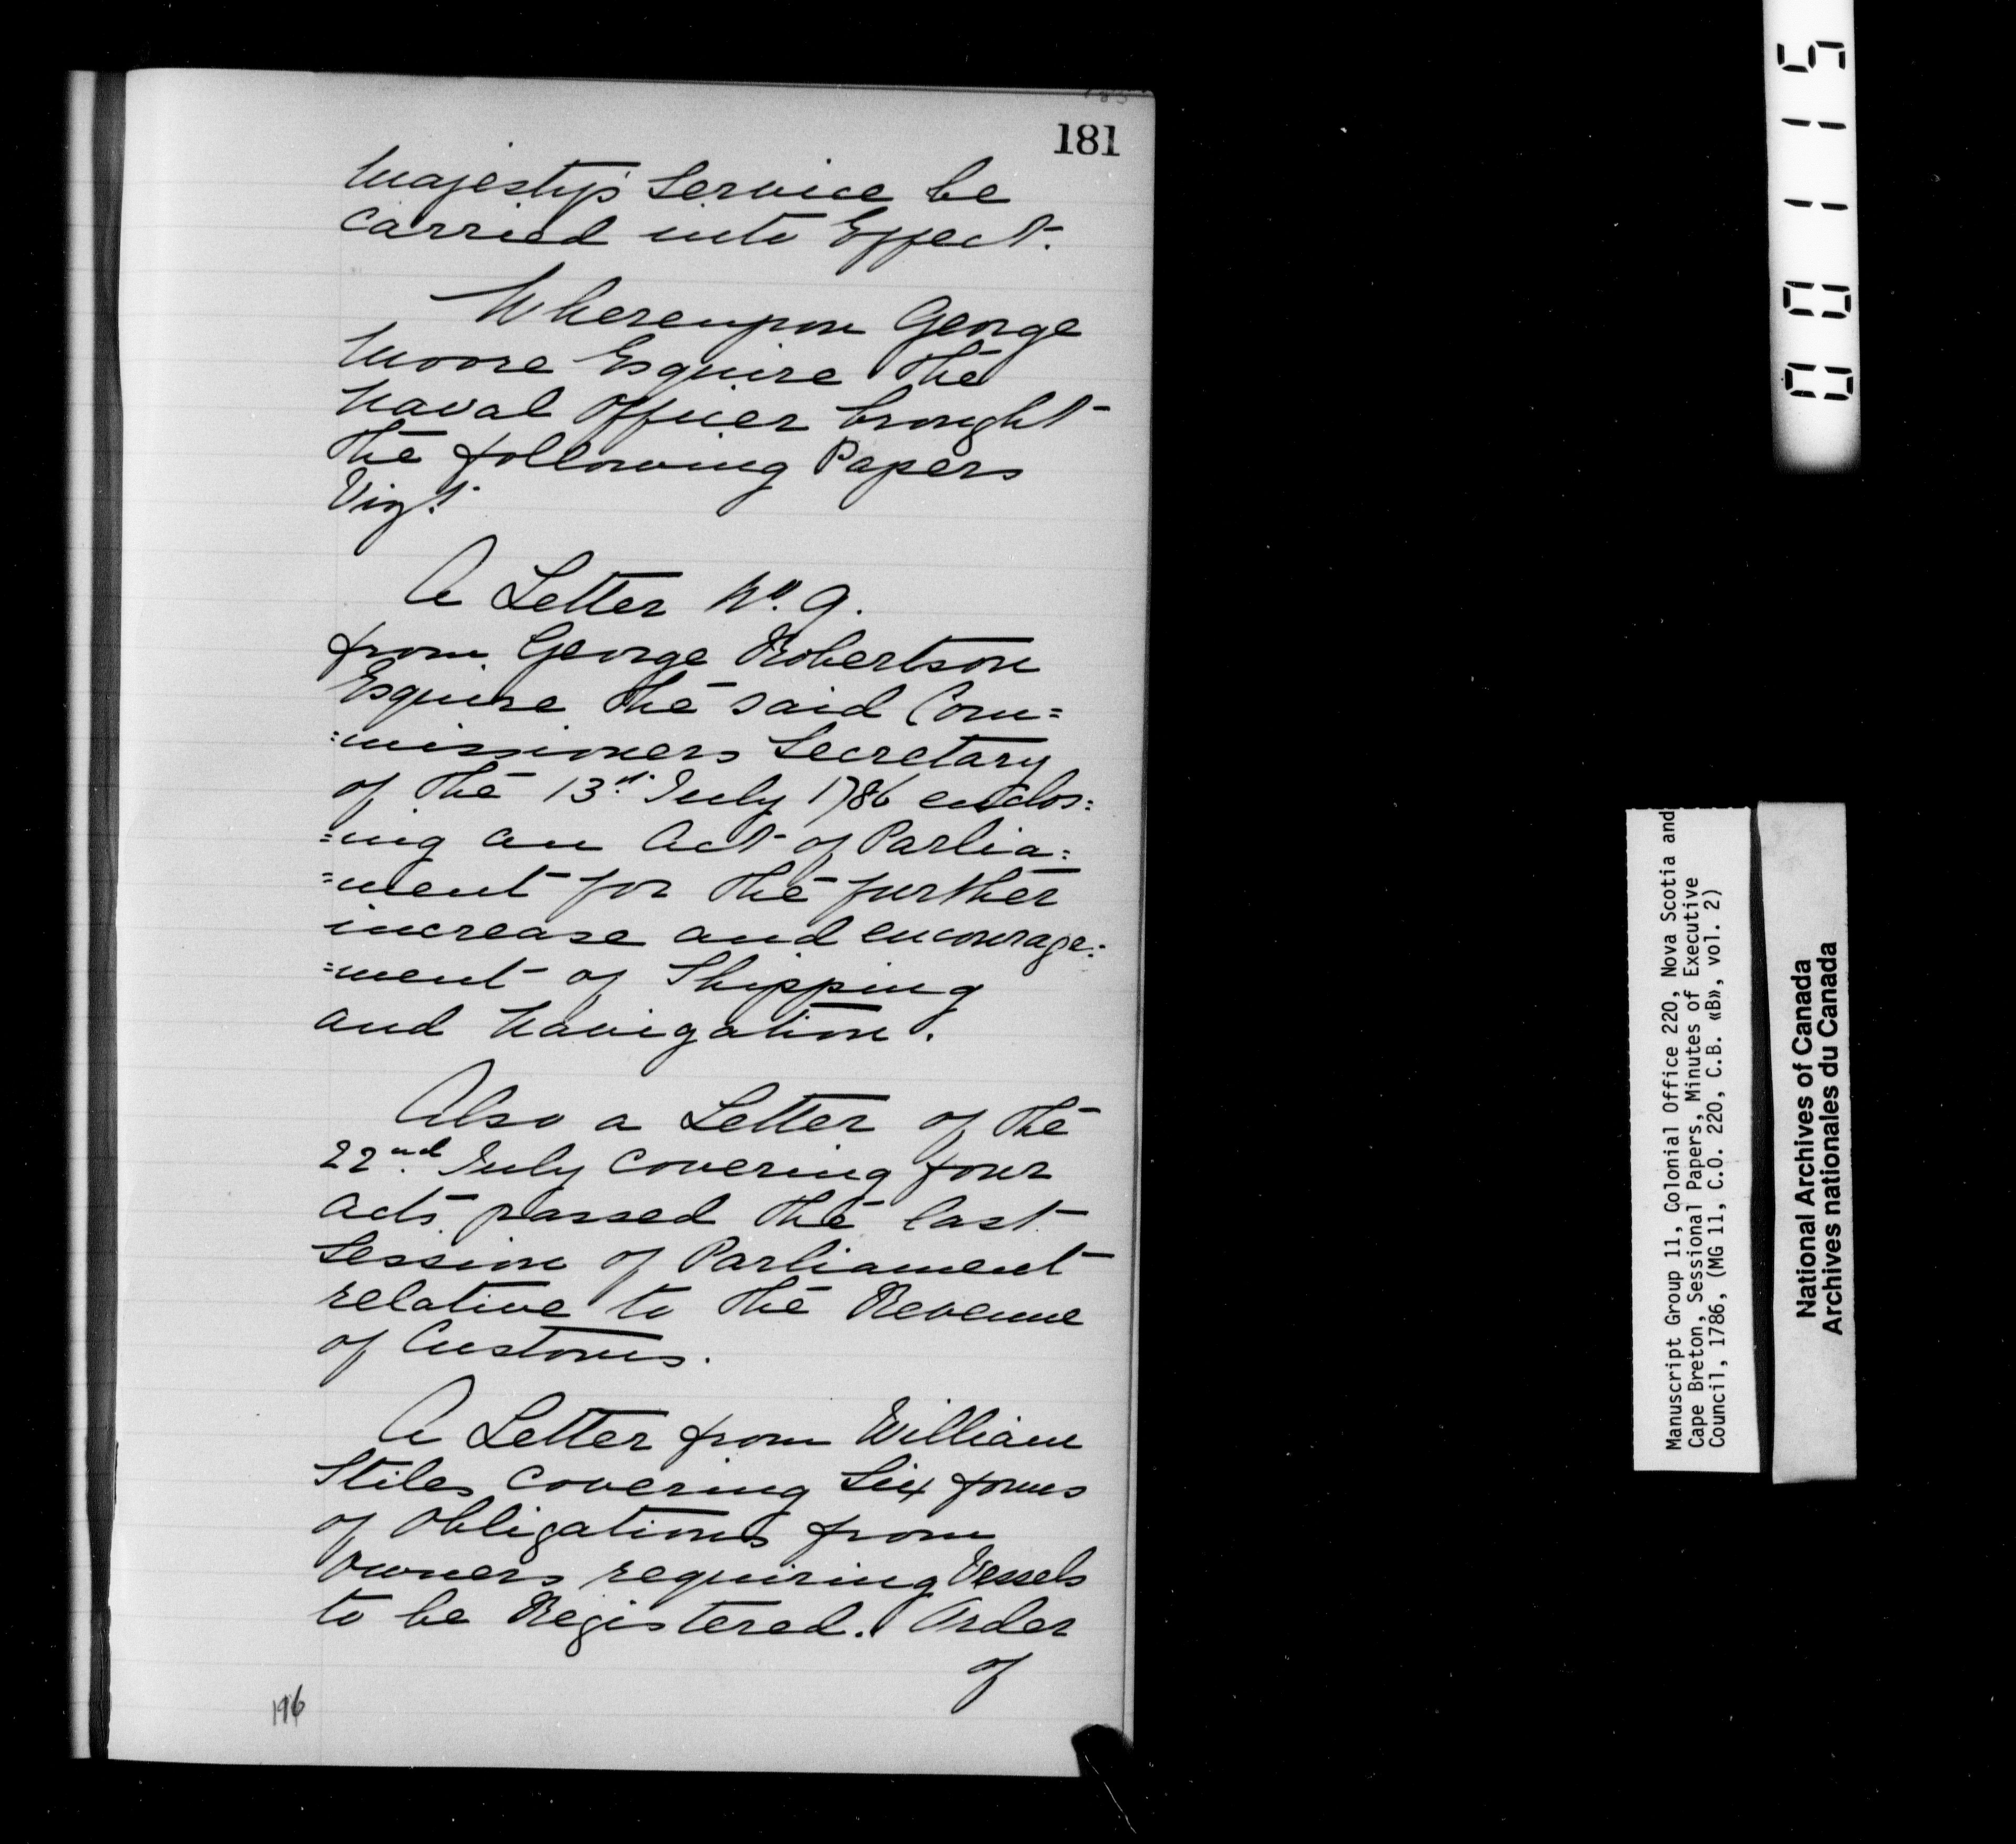 181
Majesty's Service be
carried into Effect.
Whereupon George
Moore Esquire the
Naval Officer brought
the following Papers
Vizt.
A Letter No. 9.
from George Robertson
Esquire the said Com=
=missioners Secretary
of the 13th. July 1786 enclos=
=ing an Act of Parlia=
=ment for the further
increase and encourage=
=ment of Shipping
and Navigation.
Also a Letter of the
22nd. July covering four
Acts passed the last
Session of Parliament
relative to the Revenue
of Customs.
A Letter from William
Stiles covering Six forms
of Obligations from
owners requiring Vessels
to be Registered. Order
of
196
00115
Manuscript Group 11, Colonial Office 220, Nova Scotia and
Cape Breton, Sessional Papers, Minutes of Executive
Council, 1786, (MG 11, C.O. 220, C.B. «B», vol. 2)
National Archives of Canada
Archives nationales du Canada